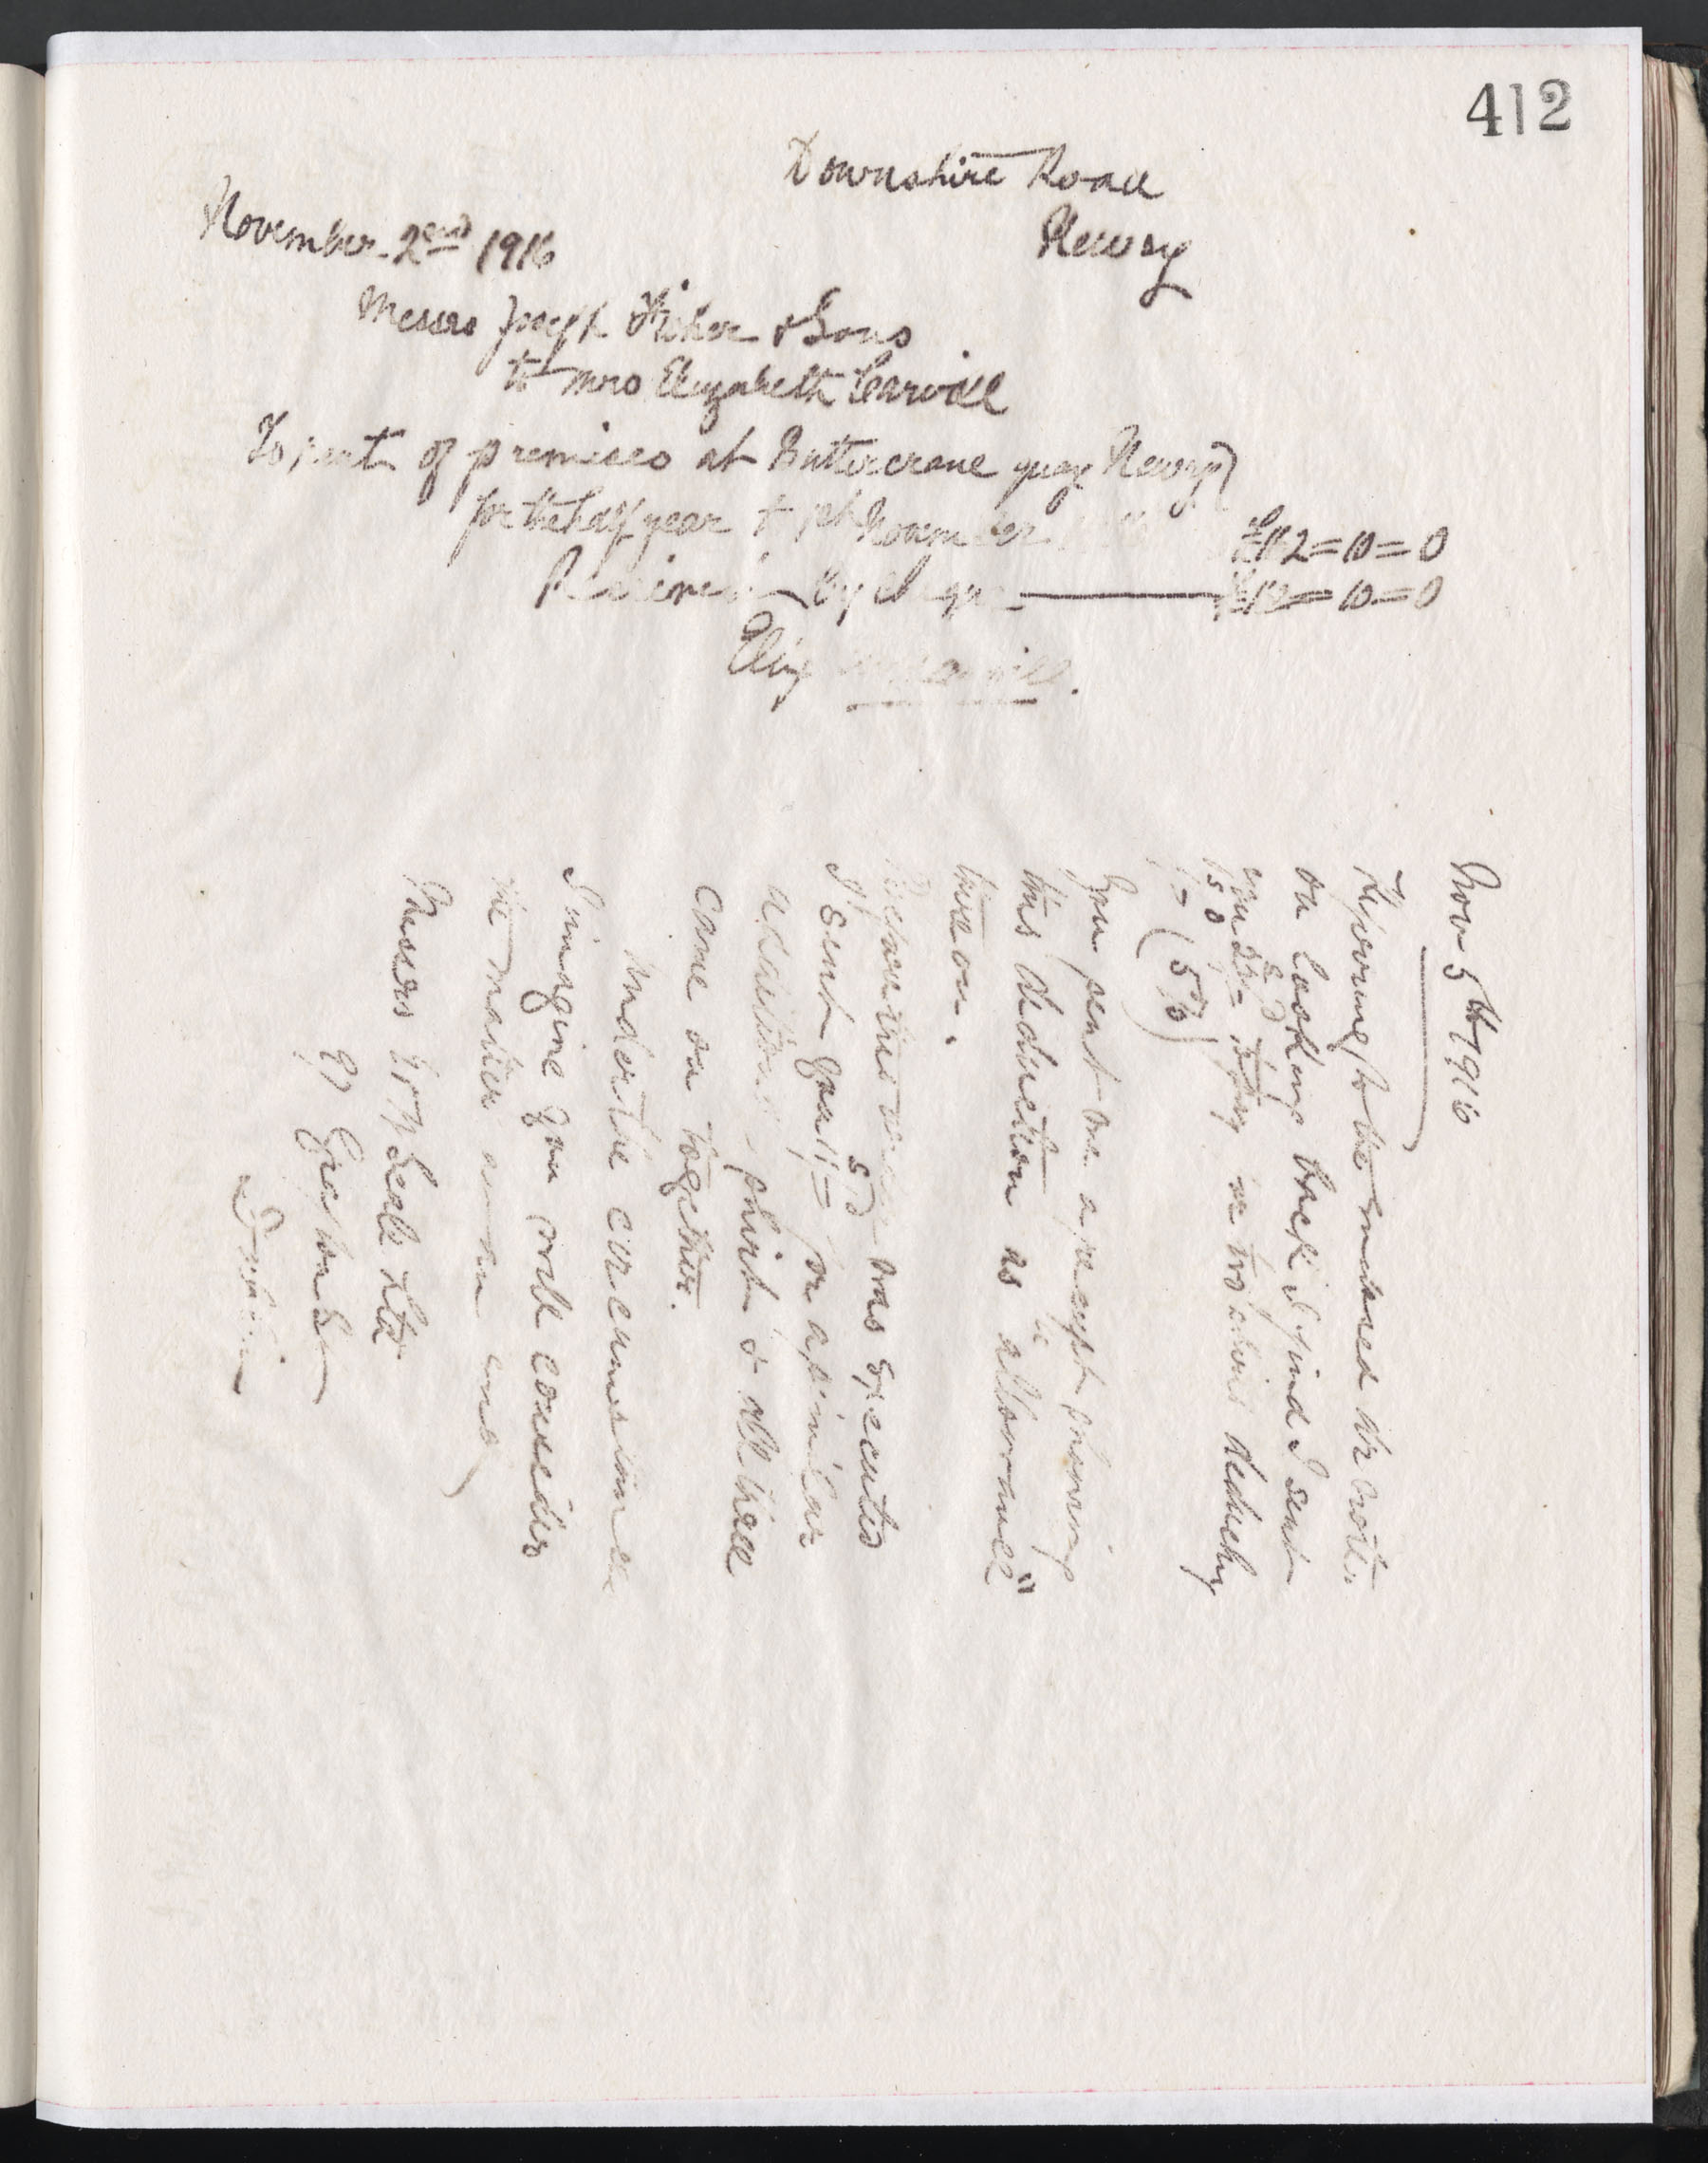 412
Downshire Road
Newry
November 2nd 1916
Messrs Joseph Fisher & Sons
to Mrs Elizabeth Carvill
To rent of premises at Buttercrane quay Newry
for the half year to 1st November £12=10=0
Received by cheque £12=10=0
Eliz Carvill.
Nov 5th 1916
Referring to the enclosed Dr note.
on looking back I find I sent
you deducting
(5%)
You sent me a receipt showing
this deduction as "allowance"
thereon.
Before this was executed
I sent you for a similar
additional shirt & all three
came on together.
Under the circumstances
I imagine you will consider
the matter
Messrs Seale Ltd
Grafton St
Dublin